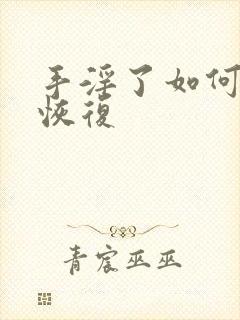 手淫了如何
恢復
青宸巫巫